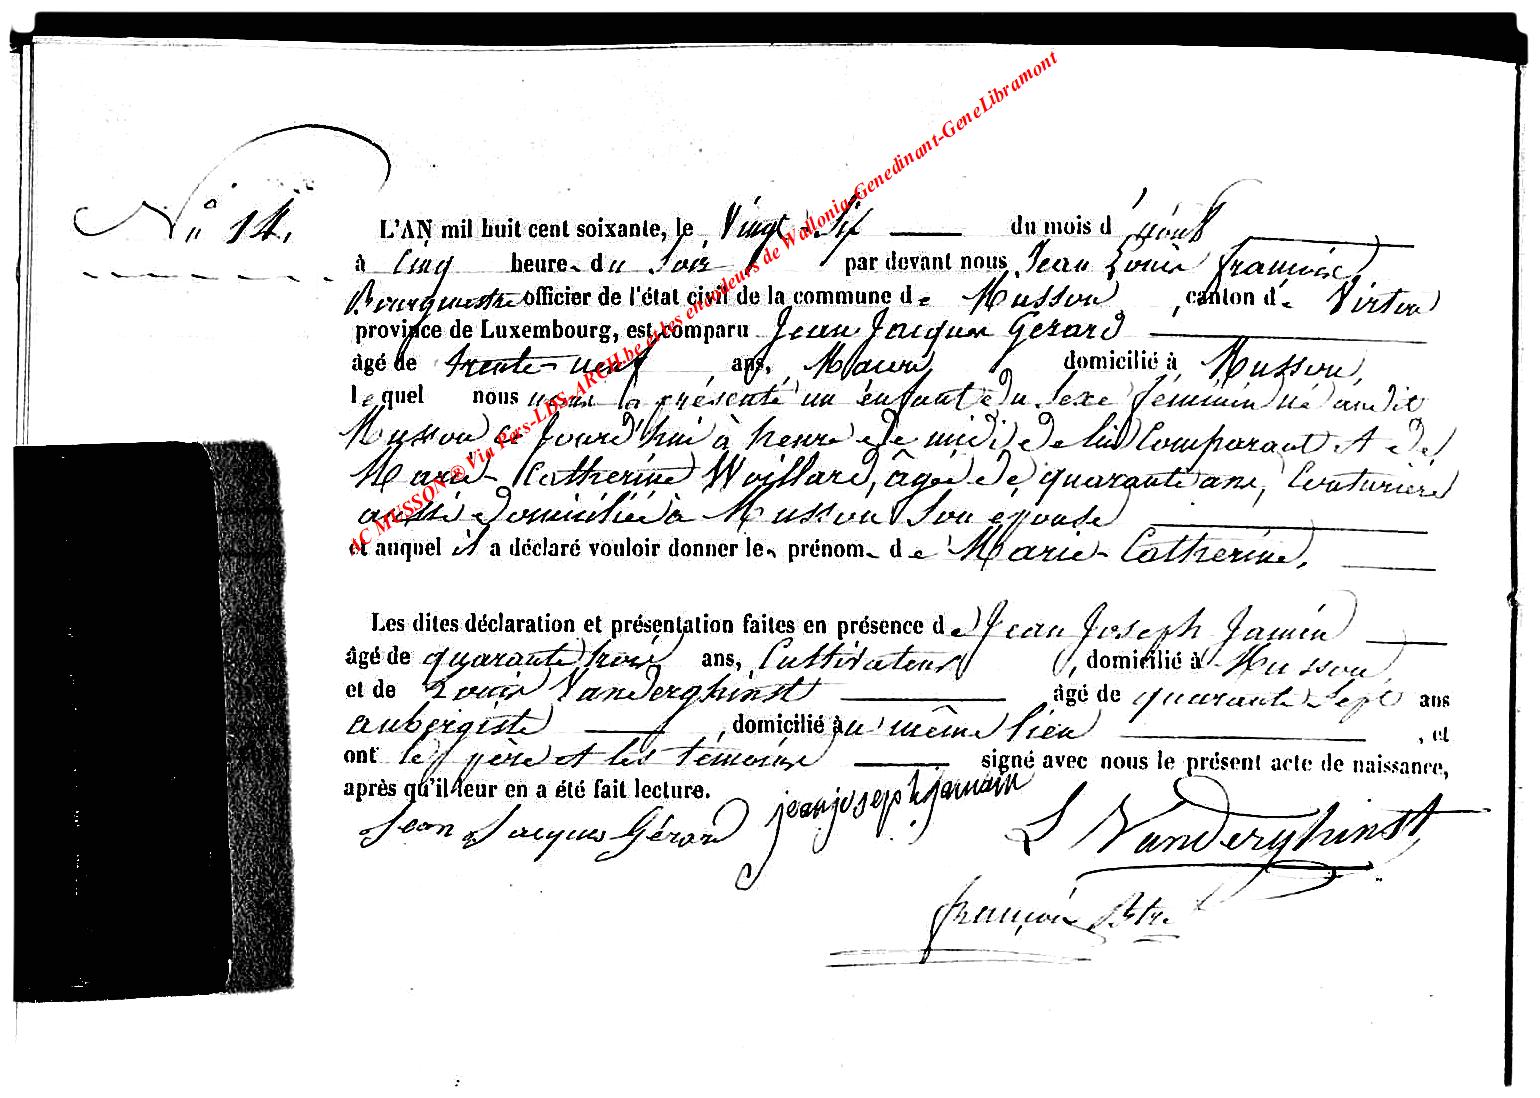 N° 14.
L'AN mil huit cent soixante, le Vingt-Six du mois d'août
à Cinq heures du Soir par devant nous Jean Louis françois,
Bourgmestre officier de l'état civil de la commune de Musson, canton de Virton
province de Luxembourg, est comparu Jean Jacques Gerard
âgé de trente-neuf ans, Maçon, domicilié à Musson,
lequel nous a présenté un enfant du Sexe féminin né audit
Musson ce Jourd'hui à heure de midi de lui Comparant et de
Marie-Catherine Woillard, âgée de quarante ans, Couturière
aussi domiciliée à Musson Son epouse
et auquel il a déclaré vouloir donner les prénoms de Marie-Catherine,
Les dites déclaration et présentation faites en présence de Jean Joseph Jamin
âgé de quarante trois ans, Cultivateur, domicilié à Musson,
et de Louis Vanderghinst âgé de quarante Sept ans
aubergiste, domicilié au même lieu, et
ont le père et les témoins signé avec nous le présent acte de naissance,
après qu'il leur en a été fait lecture.
Jean Jacques Gérard jean joseph jamain
L Vanderghinst
françois Btre
AC MUSSON ® Via Pers-LDS-ARCH.be et les encodeurs de Wallonia-Genedinant-GeneLibramont